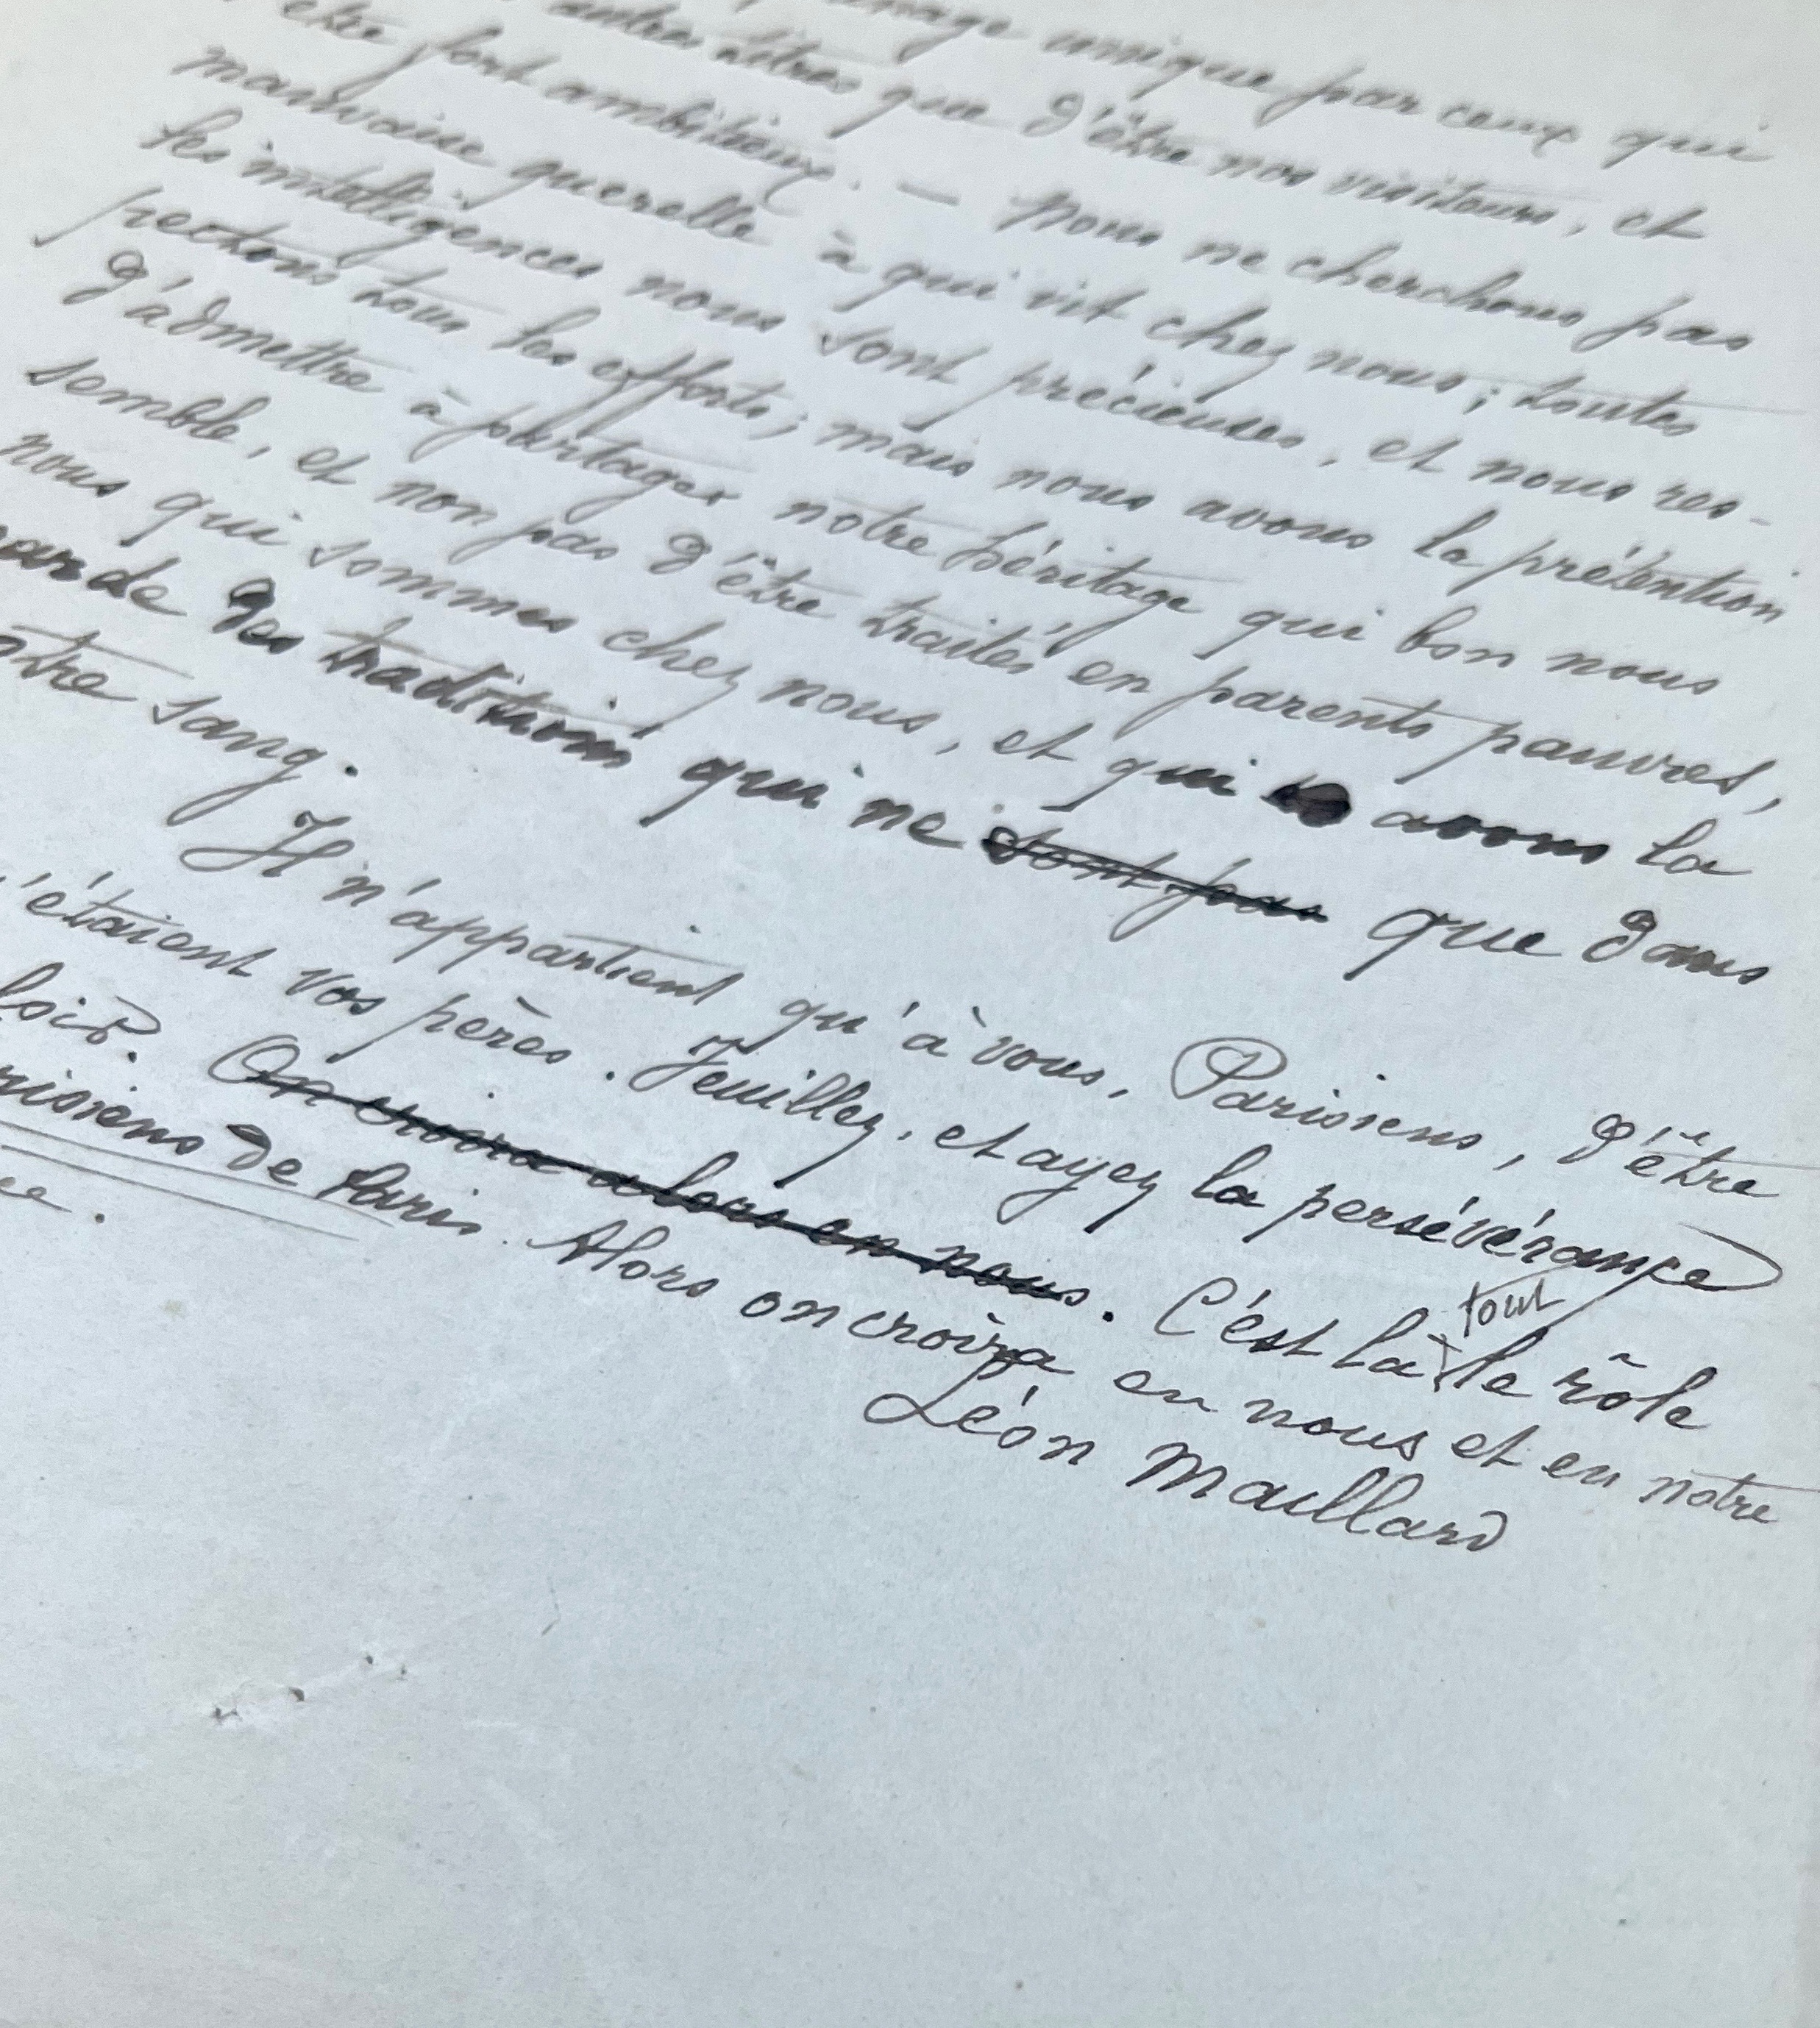 unique par ceux qui
autres titres que d'être nos visiteurs, et
être fort ambitieux. — Nous ne cherchons pas
mauvaise querelle à qui vit chez nous ; toutes
les intelligences nous sont précieuses, et nous res-
pectons tous les efforts ; mais nous avons la prétention
d'admettre à partager notre héritage qui bon nous
semble, et non pas d'être traités en parents pauvres,
nous qui sommes chez nous, et qui avons la
arde des traditions qui ne sont pas que dans
otre sang.
Il n'appartient qu'à vous, Parisiens, d'être
'étaient vos pères. Veuillez, et ayez la persévérance
loir. On croira alors en nous. C'est là tout le rôle
risiens de Paris. Alors on croira en nous et en notre
Léon Maillard